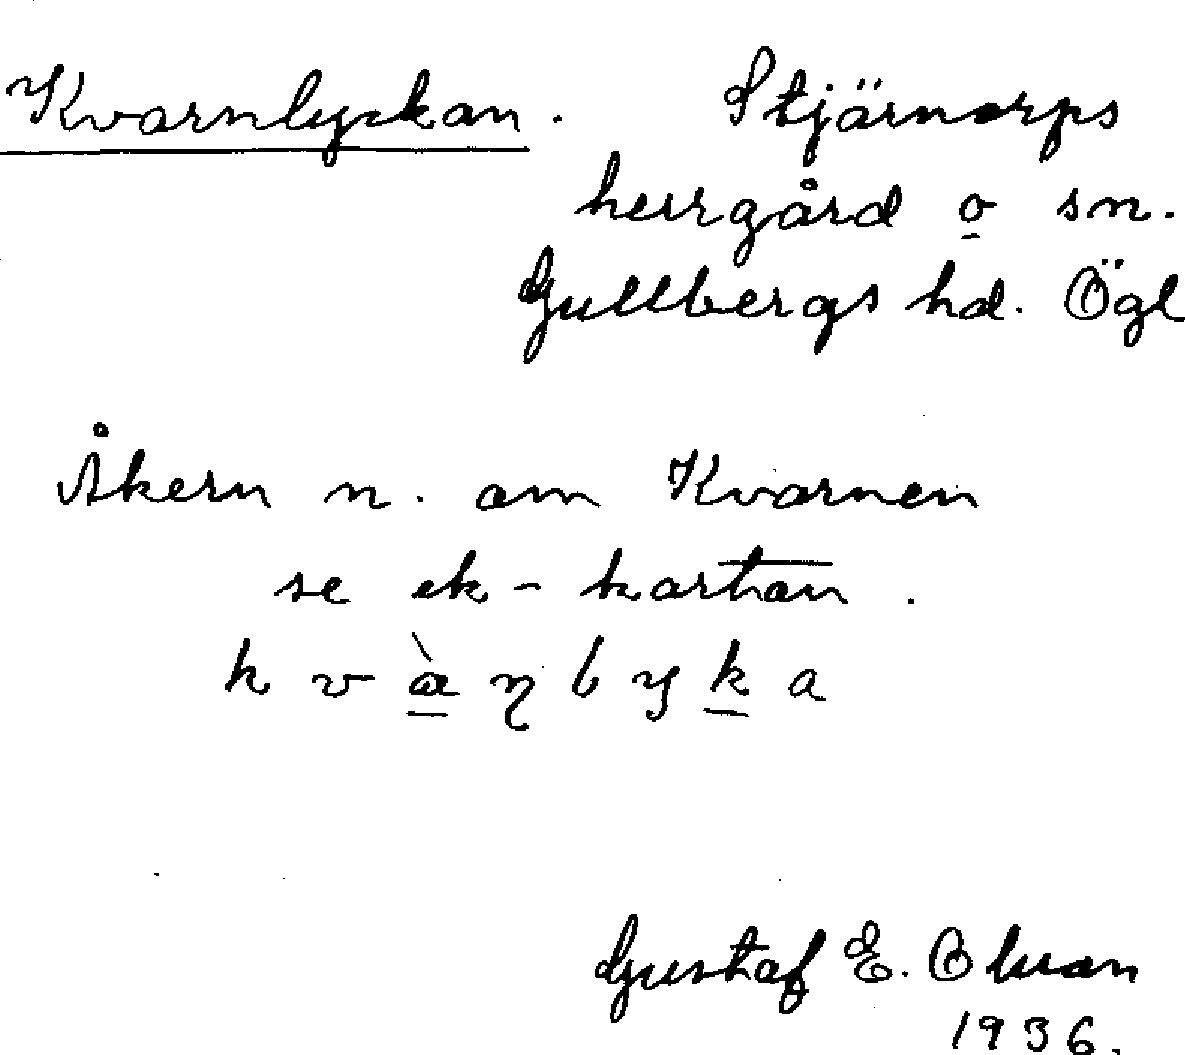 Kvarnlyckan. Stjärnorps
herrgård o sn.
Gullbergs hd. Ögl
Åkern n. om Kvarnen
se ek-kartan.
Gustaf E. Olsson
1936.